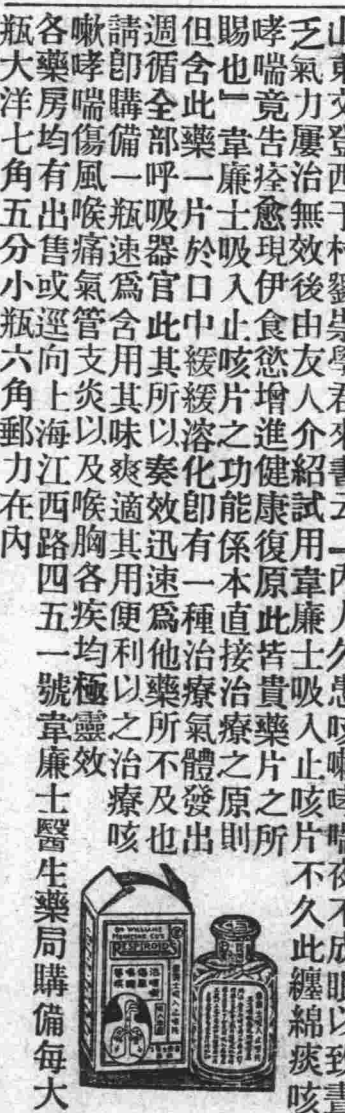 山東文登西于村劉崇學君來書云『內人久患咳嗽哮喘夜不成眼以致書
乏氣力屢治無效後由友人介紹試用韋廉士吸入止咳片不久此纏綿痰咳
哮喘竟告痊愈現伊食慾增進健康復原此皆貴藥片之所
賜也』韋廉士吸入止咳片之功能係本直接治療之原則
但含此藥一片於口中緩緩溶化卽有一種治療氣體發出
週循全部呼吸器官此其所以奏效迅速爲他藥所不及也
請卽購備一瓶速爲含用其味爽適其用便利以之治療咳
嗽哮喘傷風喉痛氣管支炎以及喉胸各疾均極靈效
各藥房均有出售或逕向上海江西路四五一號韋廉士醫生藥局購備每大
瓶大洋七角五分小瓶六角郵力在內
DR WILLIAMS
MEDICINE CO'S
RESPIROIDS